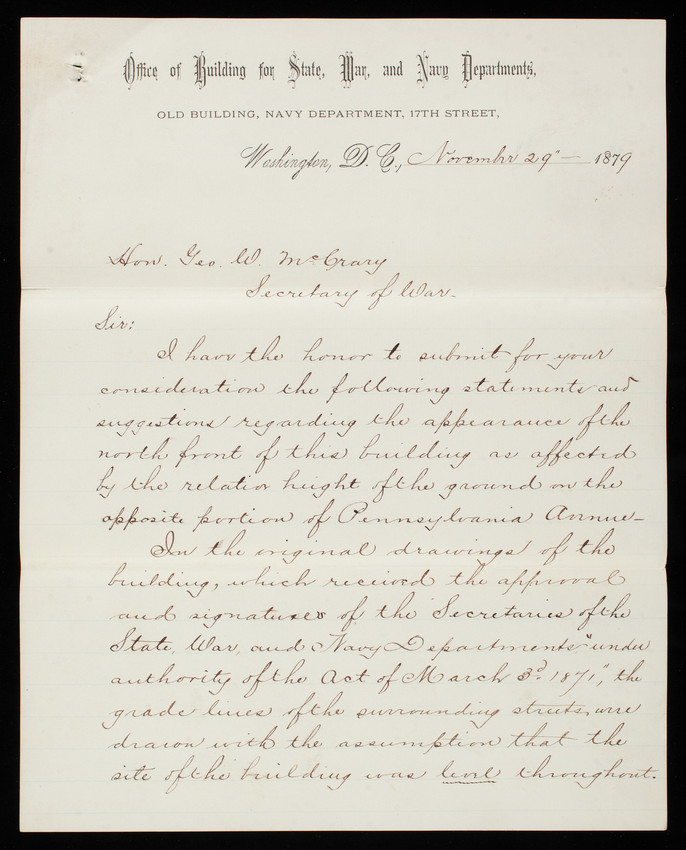 Office of Building for State, War, and Navy Departments,
OLD BUILDING, NAVY DEPARTMENT, 17TH STREET,
Washington, D. C., November 29" — 1879
Hon. Geo. W. McCrary
Secretary of War-
Sir:
I have the honor to submit for your
consideration the following statements and
suggestions regarding the appearance of the
north front of this building as affected
by the relative height of the ground on the
opposite portion of Pennsylvania Avenue-
In the original drawings of the
building, which received the approval
and signatures of the Secretaries of the
State, War, and Navy Departments "under
authority of the Act of March 3d. 1871", the
grade lines of the surrounding streets were
drawn with the assumption that the
site of the building was level throughout.